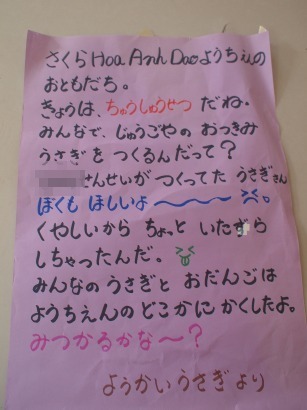 さくら Hoa Anh Daoようちえんの
おともだち。
きょうは、ちゅうしゅうせつ だね。
みんなで、じゅうごやの おつきみ
うさぎを つくるんだって？
さんせいが つくってた うさぎさん
ぼくも ほしいよ〜〜〜。
くやしいから ちょっと いたずら
しちゃったんだ。
みんなの うさぎと おだんごは
ようちえんの どこかに かくしたよ。
みつかるかな〜？
ようかい うさぎ より